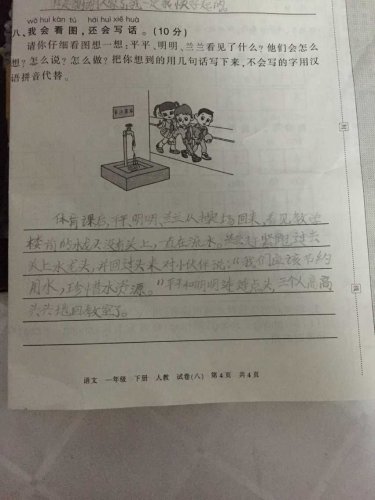 wǒ huì kàn tú hái huì xiě huà
八、我会看图，还会写话。(10分)
请你仔细看图想一想，平平、明明、兰兰看见了什么？他们会怎么
想？怎么说？怎么做？把你想到的用几句话写下来，不会写的字用汉
语拼音代替。
体育课后，平平、明明、兰兰从操场回来，看见教学
楼前的水龙头没有关上，一直在流水。兰兰赶紧跑过去
关上水龙头，并回过头来对小伙伴说："我们应该节约
用水，珍惜水资源。"平平和明明连连点头，三个人高高
兴兴地回教室了。
语文 一年级 下册 人教 试卷(八) 第4页 共4页